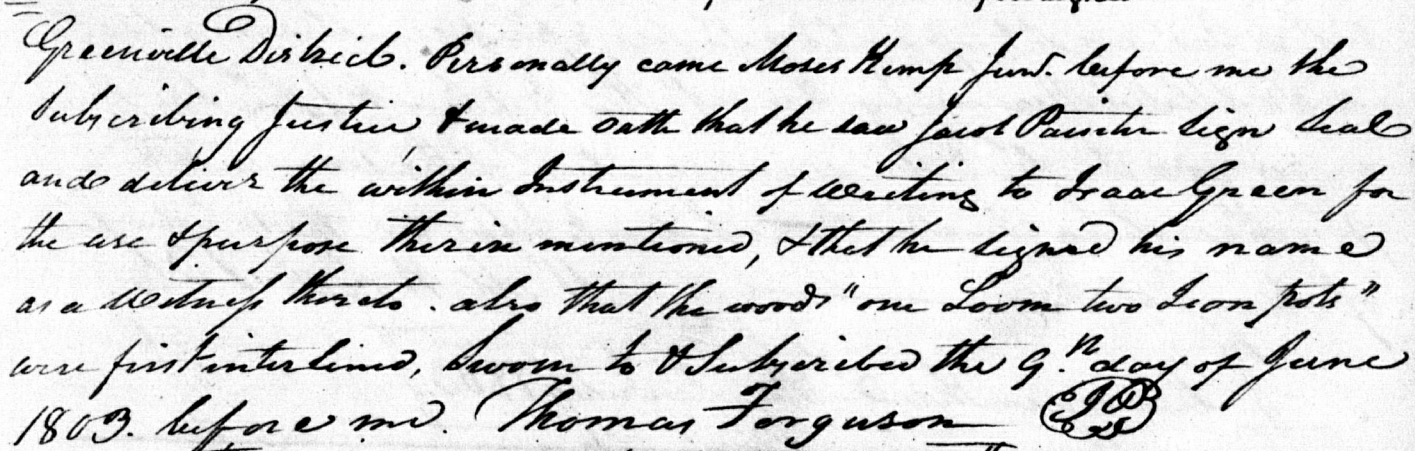 Greenville District. Personally came Moses Kemp Junr. before me the
Subscribing Justice & made oath that he saw Jacob Painter sign Seal
and deliver the within Instrument of Writing to Isaac Green for
the use & purpose therein mentioned, & that he signed his name
as a Witness thereto. also that the words "one Loom two Iron pots"
were first interlined, Sworn to & Subscribed the 9th day of June
1803. before me. Thomas Ferguson JP